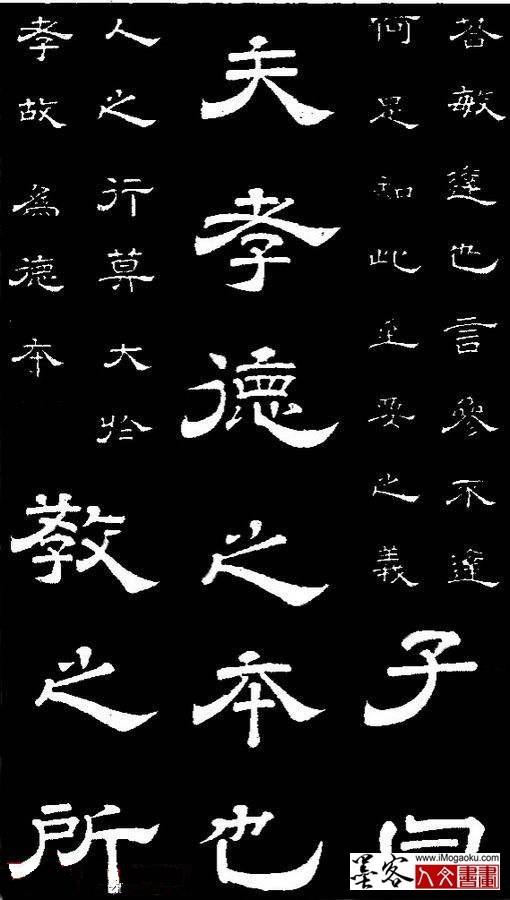 荅敏達也言參不達
何足知此至要之義
子曰
夫孝德之本也
人之行莫大於
孝故為德本
教之所
www.iMogaoku.com
墨客
人文書畫